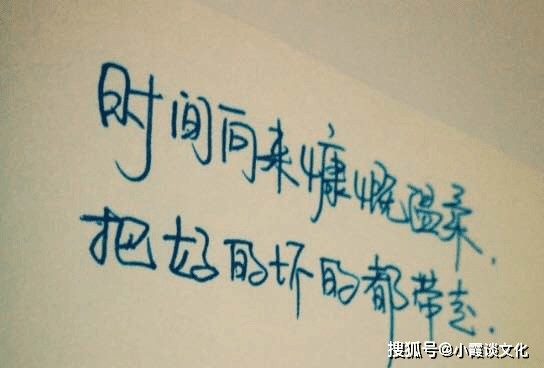 时间向来慷慨温柔.
把好的坏的都带走.
搜狐号@小霞谈文化